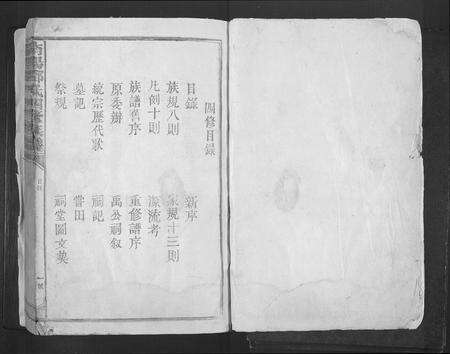 四修目錄
目錄 新序
族規八則 家規十三則
凡例十則 源流考
族譜舊序 重修譜序
原委辦 萬公祠叙
統宗歷代歌 祠記
墓記 嘗田
祭規 祠堂圖文契